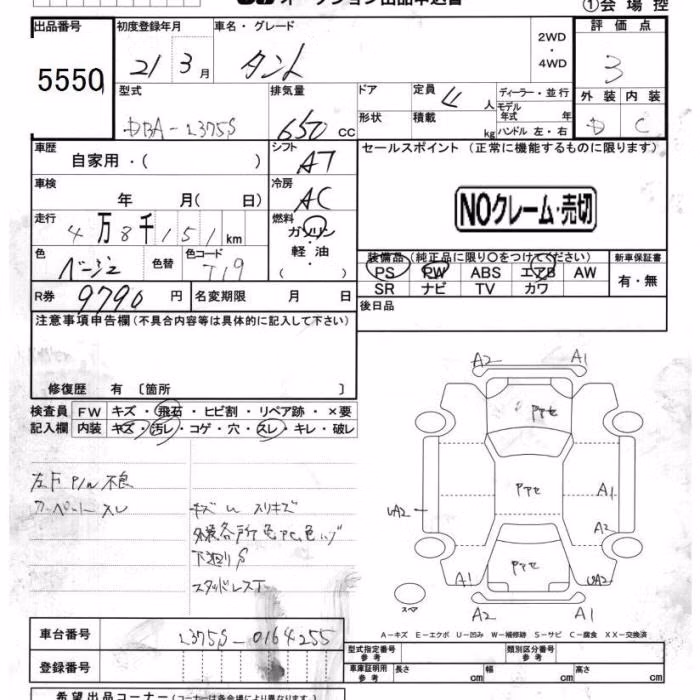 ①会場控
出品番号 初度登録年月 車名・グレード 2WD・4WD 評価点
5550 21 3月 タント 3
型式 排気量 ドア 定員 4人 ディーラー・並行 外装 内装
DBA-L375S 650cc 形状 積載 kg モデル年式 年 ハンドル 左・右 D C
車歴 自家用・( ) シフト AT セールスポイント (正常に機能するものに限ります)
車検 年 月( 日) 冷房 AC NOクレーム・売切
走行 4万8千151km 燃料 ガソリン・軽油・( )
色 ベージュ 色替 色コード T19 装備品(純正品に限り○をつけてください) 新車保証書
PS PW ABS エアB AW 有・無
SR ナビ TV カワ
R券 9790円 名変期限 月 日 後日品
注意事項申告欄(不具合内容等は具体的に記入して下さい)
修復歴 有 〔箇所 〕
検査員 FW キズ・飛石・ヒビ割・リペア跡・×要
記入欄 内装 キズ・汚レ・コゲ・穴・スレ・キレ・破レ
左F P/W 不良
カーペット スレ
キズ U スリキズ
外装各所
下廻りS
スタッドレスT
A2 A1
Pケセ
Pケセ A1
UA2 A2
Pケセ
A1 UA2
スペア A2 A1
A-キズ E-エクボ U-凹み W-補修跡 S-サビ C-腐食 XX-交換済
車台番号 L375S-0164255
登録番号
型式指定番号 参考 類別区分番号 参考
車庫証明用 参考 長さ cm 幅 cm 高さ cm
希望出品コーナー(コーナーは各会場により異なります)